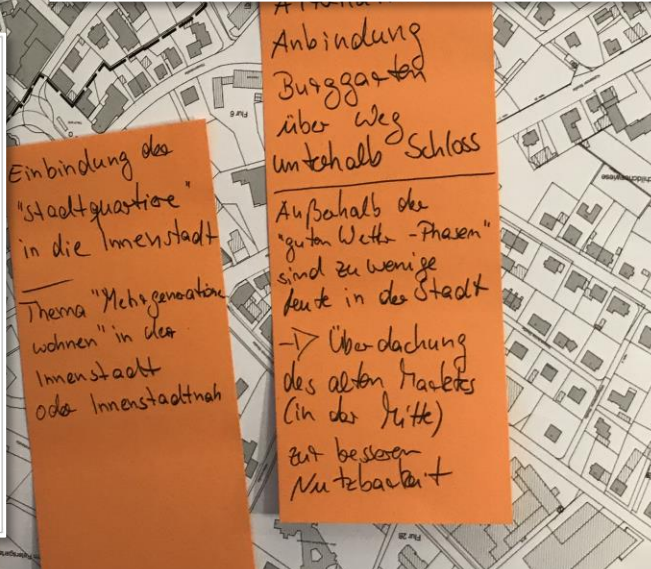 Einbindung der
"Stadtquartiere"
in die Innenstadt
Thema "Mehrgenerationen
wohnen" in der
Innenstadt
oder Innenstadtnah
Anbindung
Burggarten
über Weg
unterhalb Schloss
Außerhalb der
"guten Wetter-Phasen"
sind zu wenige
Leute in der Stadt
→ Überdachung
des alten Marktes
(in der Mitte)
zur besseren
Nutzbarkeit
Flur 6
Flur 28